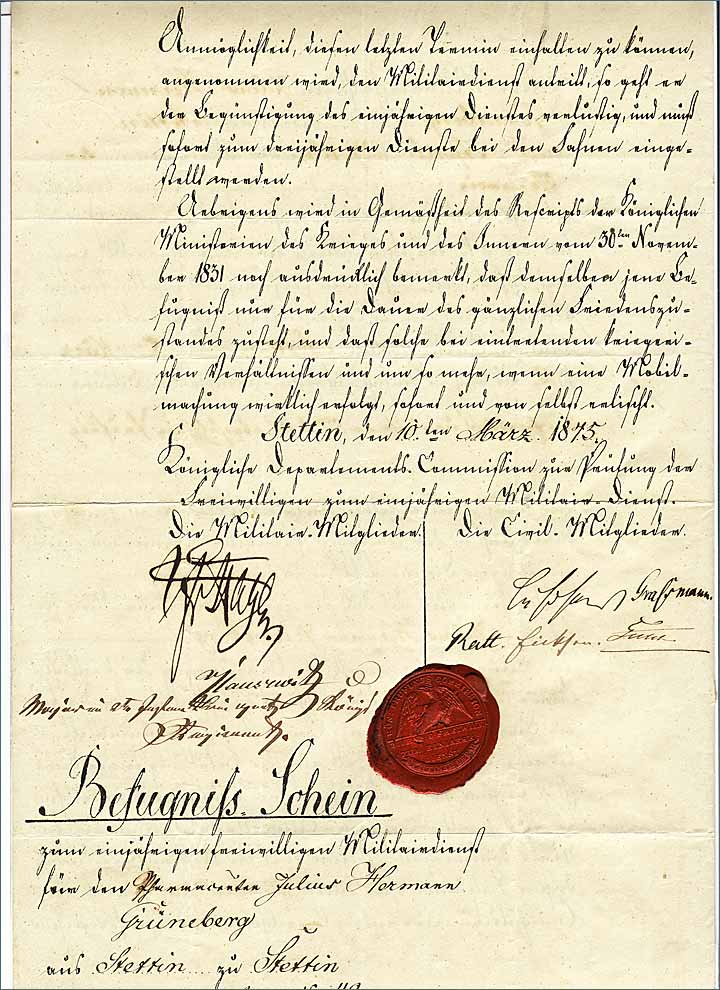 Unmöglichkeit, diesen letzten Termin einhalten zu können,
angenommen wird, den Militairdienst antritt, so geht er
der Begünstigung des einjährigen Dienstes verlustig, und muß
sofort zum dreijährigen Dienste bei den Fahnen einge-
stellt werden.
Uebrigens wird in Gemäßheit des Rescripts der Königlichen
Ministerien des Krieges und des Innern vom 30ten Novem-
ber 1831 noch ausdrücklich bemerkt, daß demselben jene Be-
fugniß nur für die Dauer des gänzlichen Friedenszu-
standes zusteht, und daß solche bei eintretenden kriegeri-
schen Verhältnissen und um so mehr, wenn eine Mobil-
machung wirklich erfolgt, sofort und von selbst erlischt.
Stettin, den 10.ten März 1875.
Königliche Departements-Commission zur Prüfung der
Freiwilligen zum einjährigen Militair-Dienst.
Die Militair-Mitglieder. Die Civil-Mitglieder.
Grassmann.
Major im
Befugniss-Schein
zum einjährigen freiwilligen Militairdienst
für den Pharmaceuten Julius Hermann
Grüneberg
aus Stettin zu Stettin